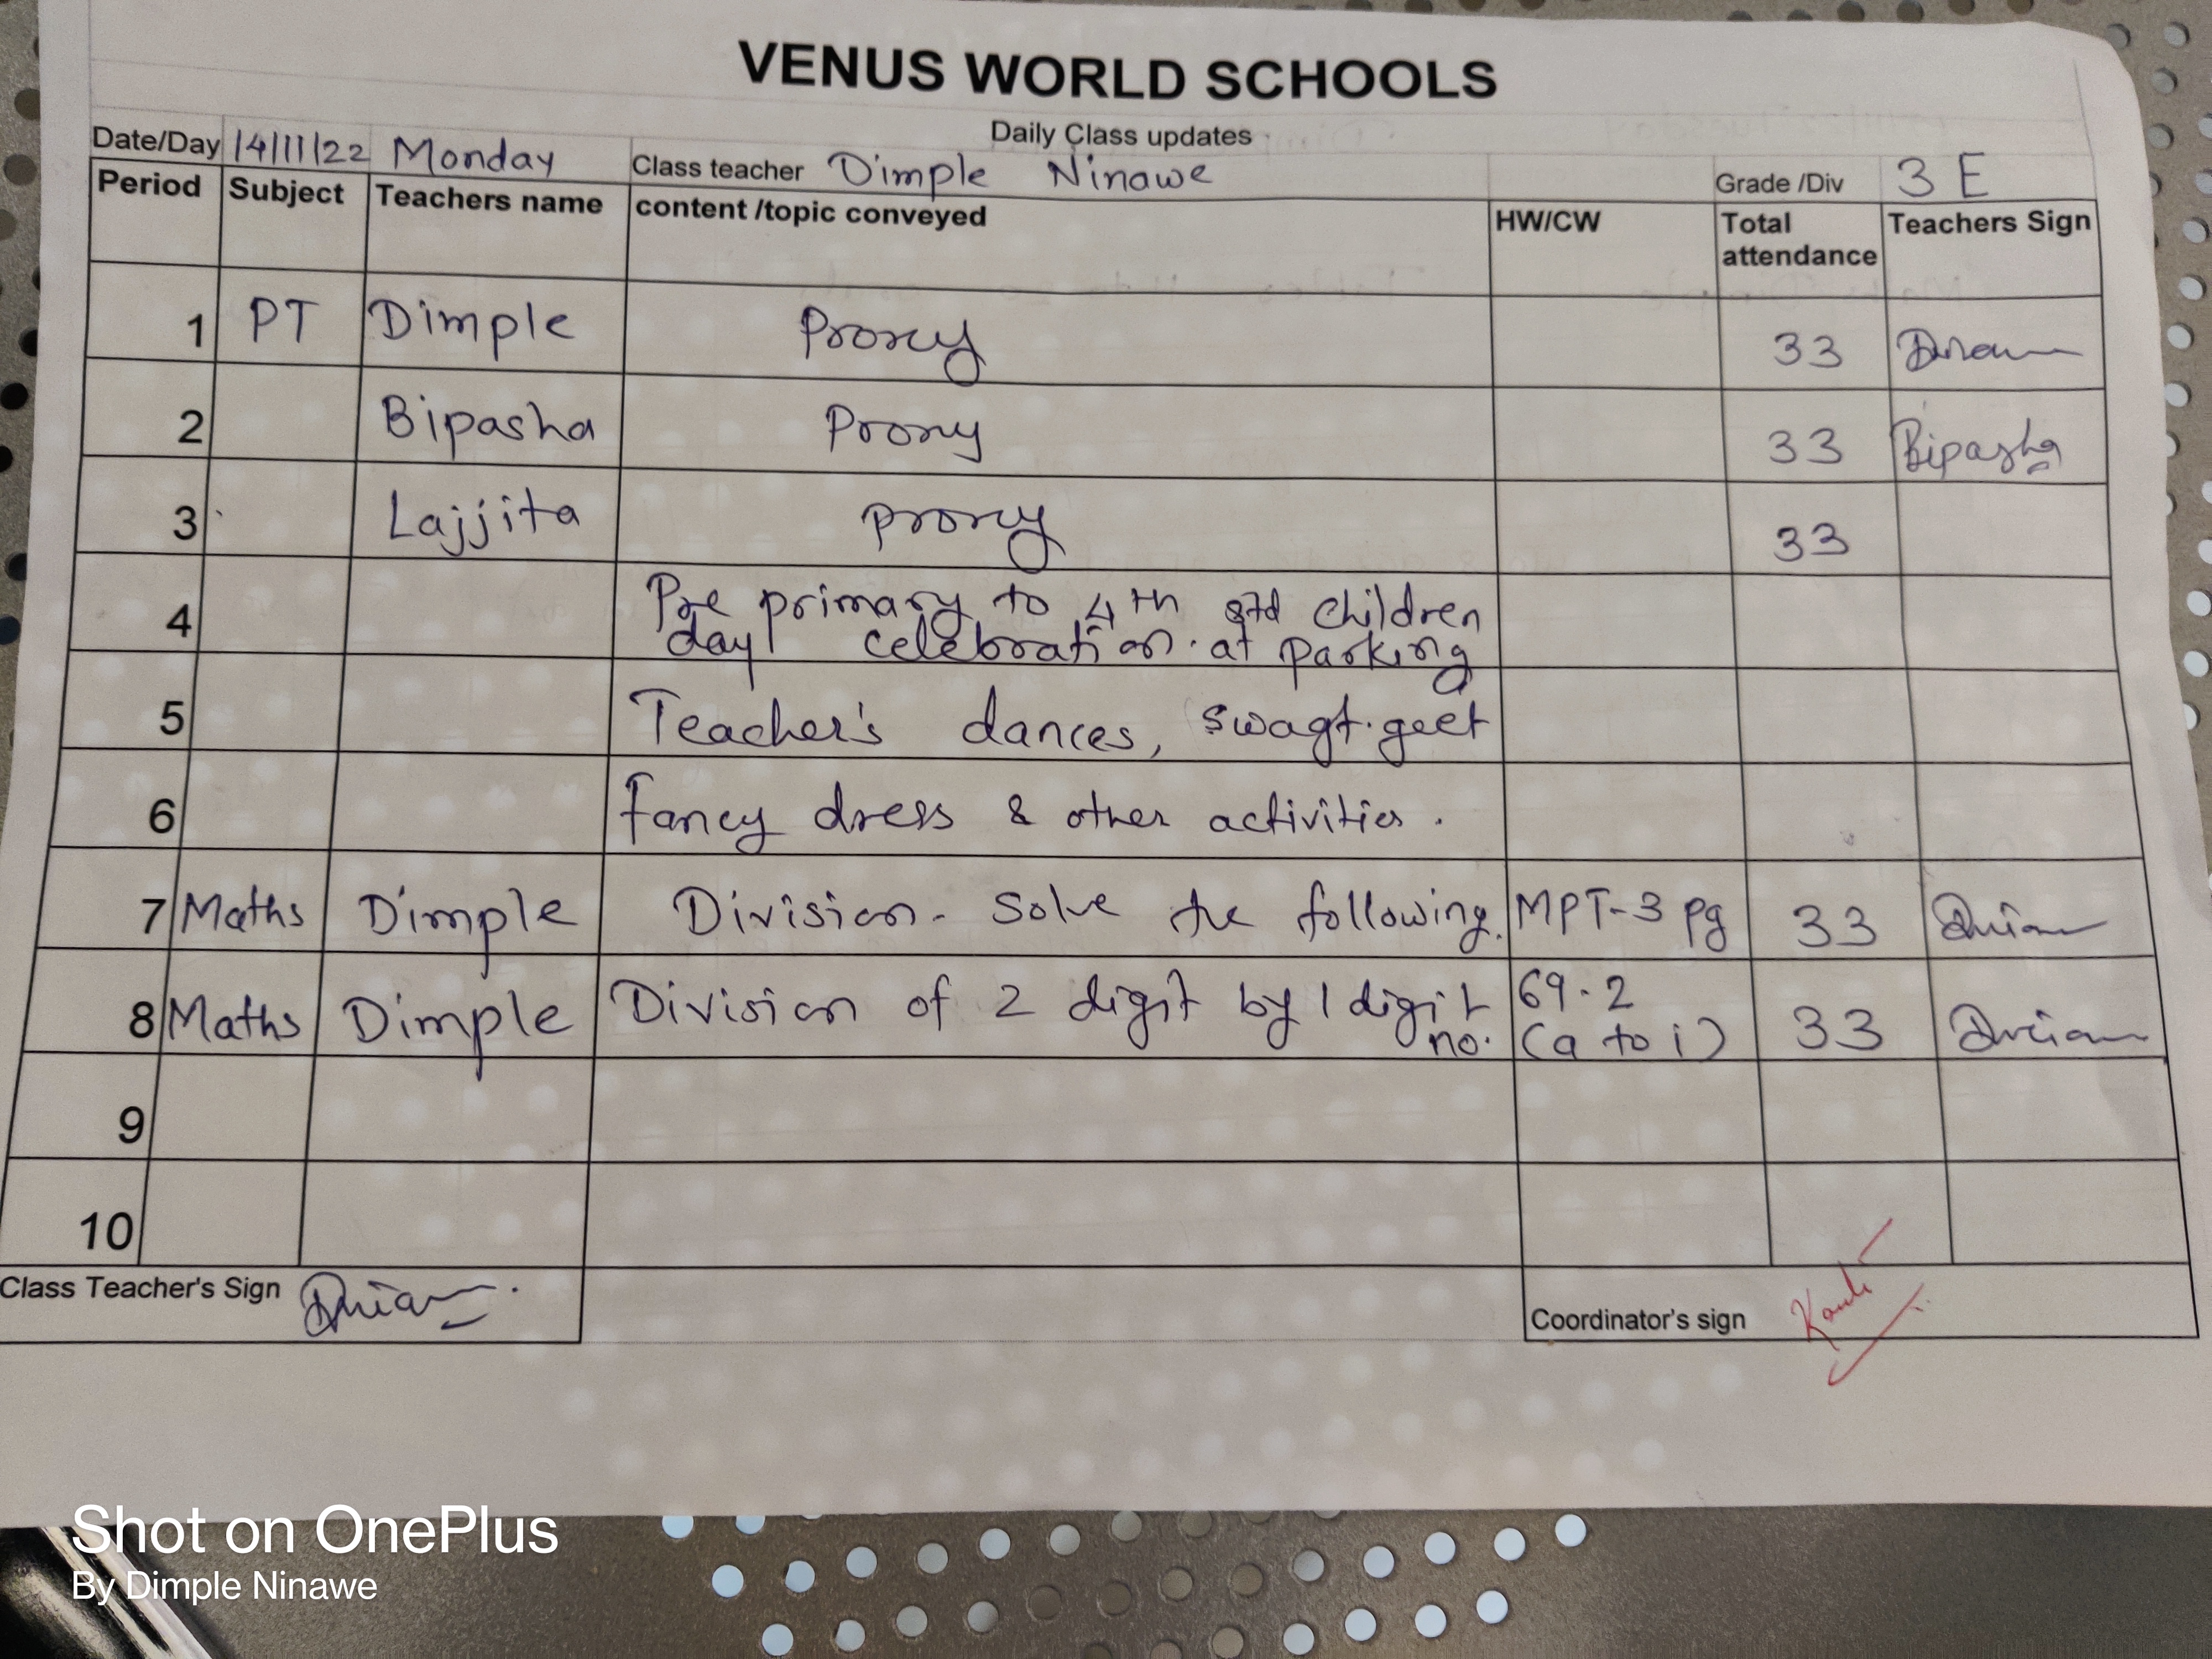 VENUS WORLD SCHOOLS
Daily Class updates
Date/Day 14/11/22 Monday Class teacher Dimple Ninawe Grade /Div 3 E
Period Subject Teachers name content /topic conveyed HW/CW Total attendance Teachers Sign
1 PT Dimple Proxy 33
2 Bipasha Proxy 33 Bipasha
3 Lajjita proxy 33
4 Pre primary to 4th std children
day celebration at parking
5 Teacher's dances, swagt geet
6 fancy dress & other activities.
7 Maths Dimple Division - Solve the following. MPT-3 pg 33
8 Maths Dimple Division of 2 digit by 1 digit no. 69.2 (a to i) 33
9
10
Class Teacher's Sign
Coordinator's sign
Shot on OnePlus
By Dimple Ninawe